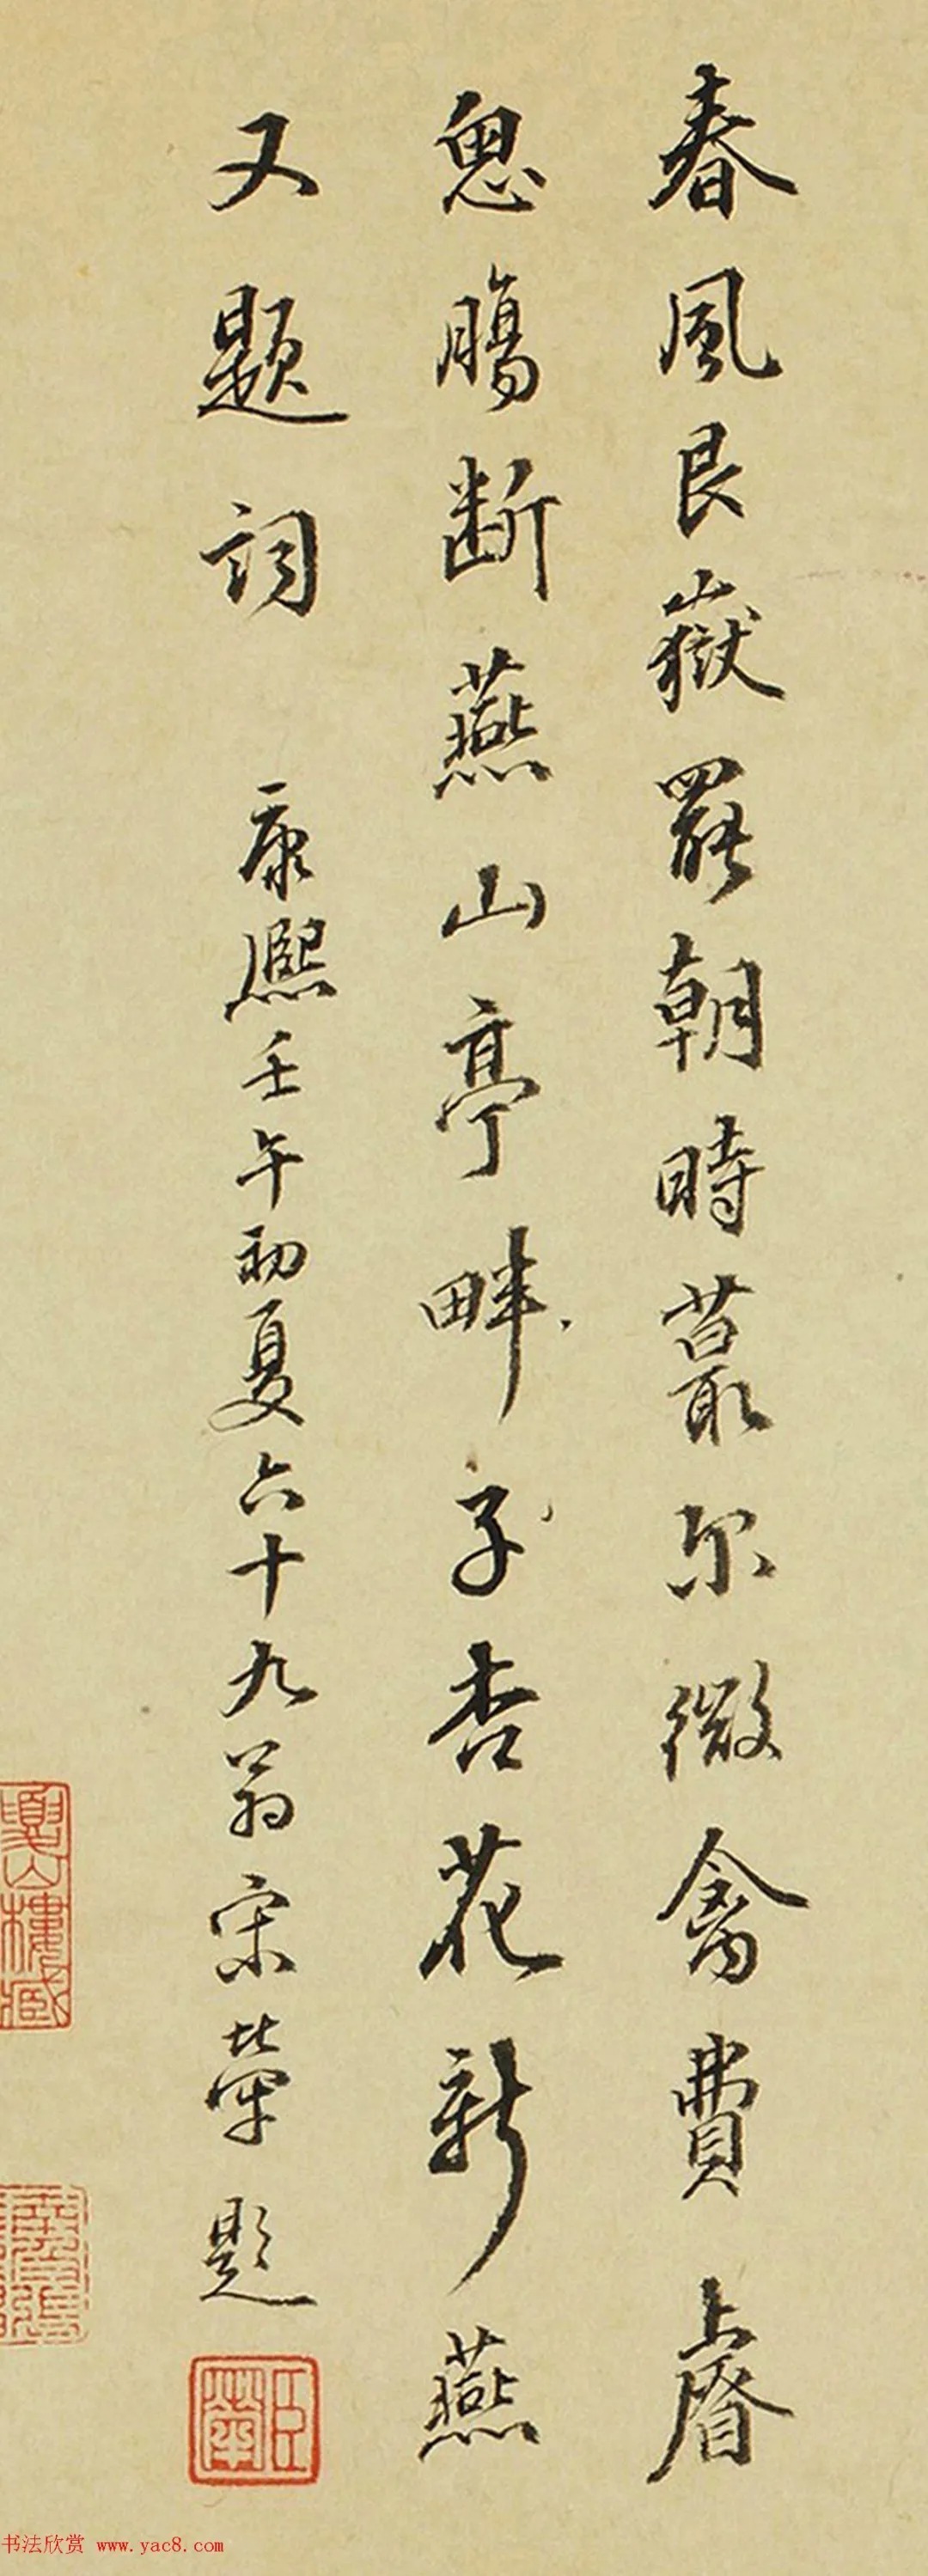 春風艮嶽罷朝時蕞尔微禽費上𦣱
忽腸断燕山亭畔子杏花新燕
又題詞 康熙壬午初夏六十九翁宋犖題
臣犖
書法欣赏 www.yac8.com